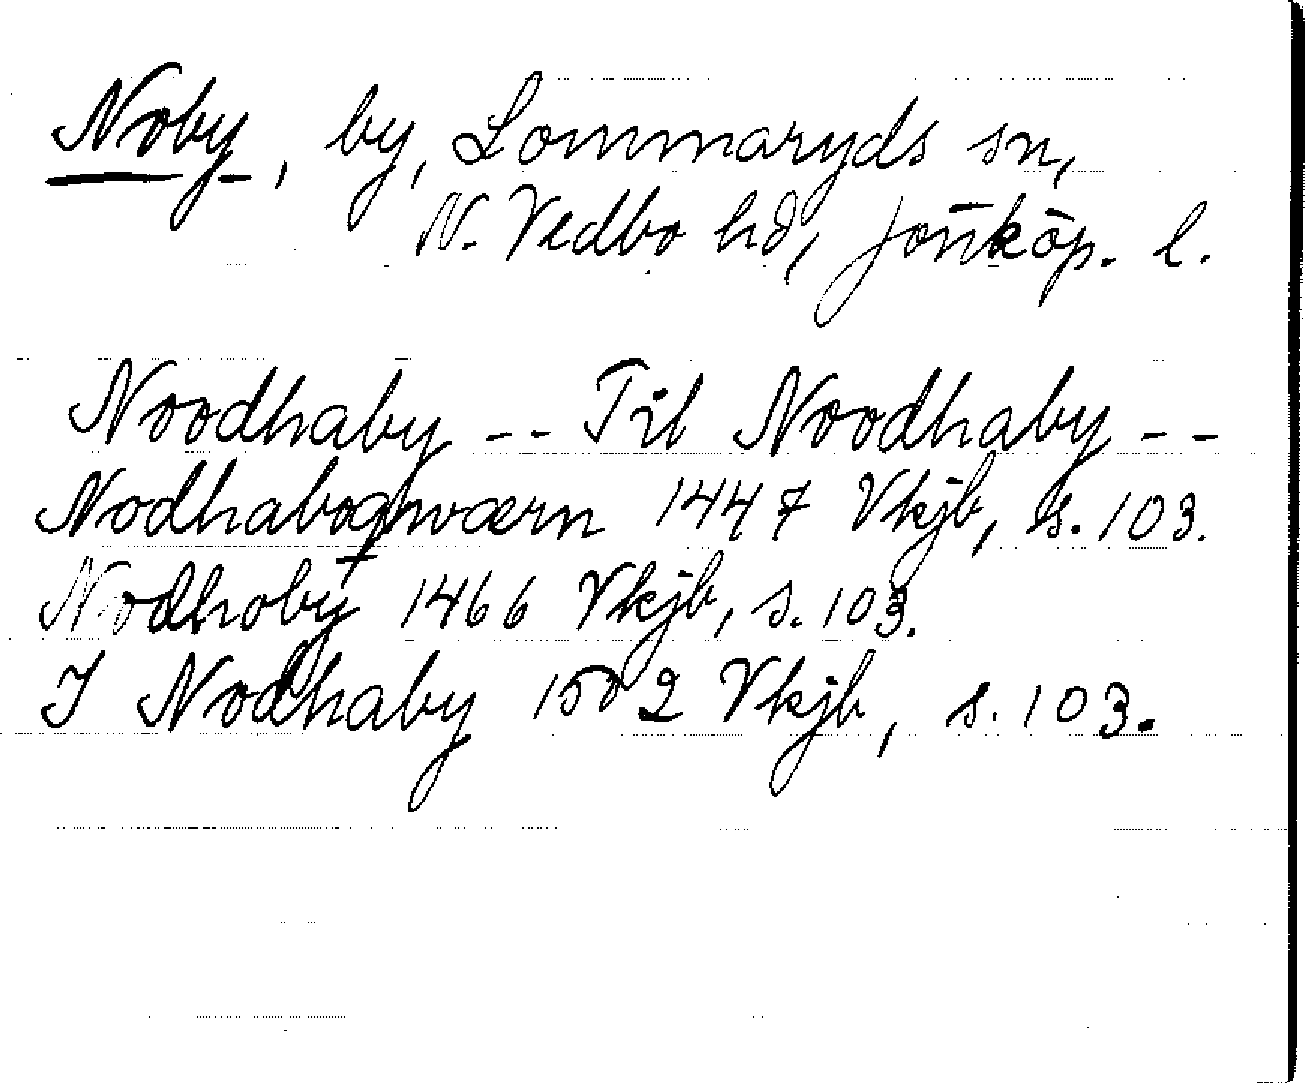 Noby, by, Lommaryds sn,
N. Vedbo hd, Jönköp. l.
Noodhaby -- Til Noodhaby --
1447 Vkjb, s. 103.
Nodhoby 1466 Vkjb, s. 103.
I Nodhaby 1502 Vkjb, s. 103.